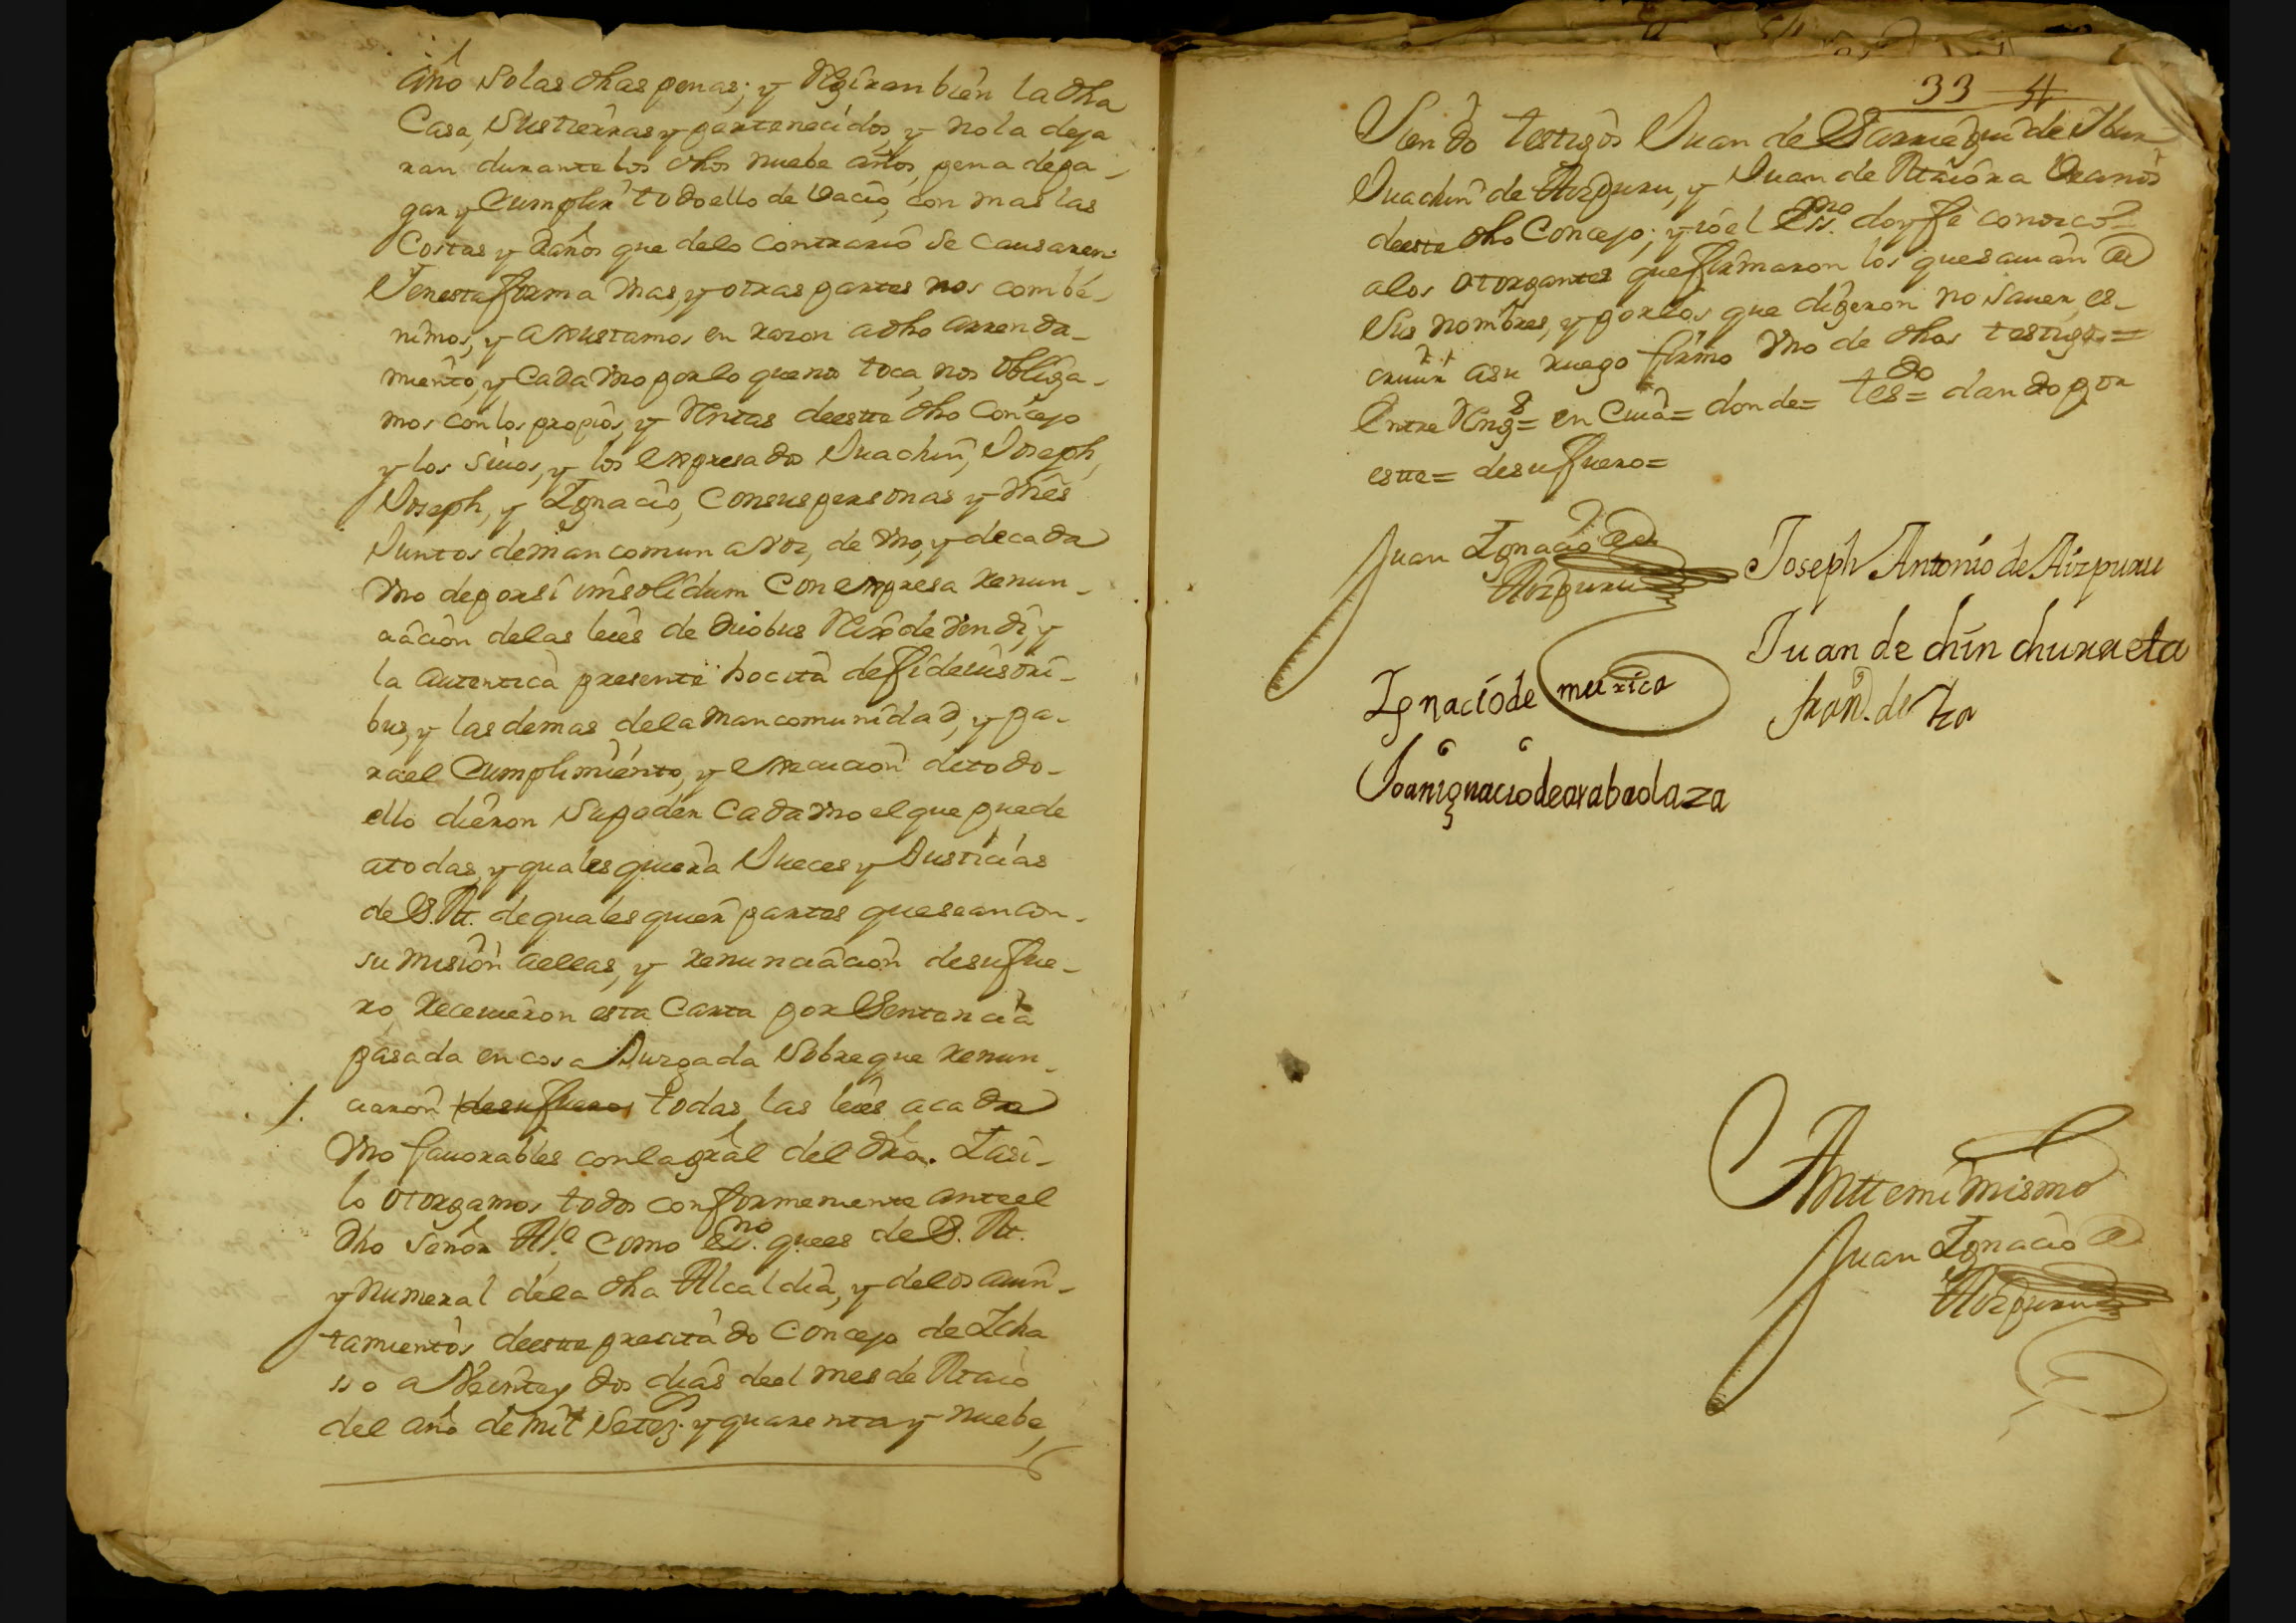 año so las dhas penas; y regiran bien la dha
Casa, sus tierras y pertenecidos, y no la deja
ran durante los dhos nuebe años, pena de pa-
gar y Cumplir todo ello de vacio, con mas las
Costas y daños que de lo contrario se causaren:
Y en esta forma Unas, y otras partes nos combe-
nimos, y ajustamos en razon a dho arrenda-
miento, y Cada Uno por lo que nos toca, nos obliga-
mos con los propios, y Rentas de este dho Concejo
y los suios, y los expresados Juachin, Joseph,
Joseph, y Ignacio, con sus personas y vnes
Juntos de mancomun a voz, de Uno, y de cada
Uno de por si insolidum con expresa renun-
ciacion de las leies de duobus Rex de vendi, y
la autentica presente hocita de fideiusori-
bus, y las demas de la mancomunidad, y pa-
ra el Cumplimiento, y execucion de todo
ello dieron su poder Cada Uno el que puede
a todas, y quales quiera Jueces y Justicias
de S. M. de quales quier partes que sean con
su mision a ellas, y renunciacion de su fue-
ro, Recevieron esta Carta por Sentencia
pasada en cosa Juzgada sobre que renun-
/. ciaron de su fuero todas las leies a cada
Uno favorables con la gral del dro. I asi
lo otorgamos todos conformemente ante el
dho señor Alle. como essno. que es de S. M.
y numeral de la dha Alcaldia, y de los aiun-
tamientos de este precitado Concejo de Icha
sso a veinte y dos dias de el mes de Maio
del año de mil setez. y quarenta y nuebe,
33 4
Siendo testigos Juan de Sarriegui de Ibar
Juachin de Aizpuru, y Juan de Maiora Vecinos
de este dho Concejo; y io el Essno. doy fe conozco
a los otorgantes que firmaron los que savian
sus nombres, y por los que digeron no saver, es-
crivir a su ruego firmo Uno de dhos testigos=
Entre Rengs= en Cuia= donde= tesdo= dando por
este= de su fuero=
Juan Ignacio de
Aizpuru
Joseph Antonio de Aizpuru
Juan de chin churreta
Ignacio de muxica
fran.co de
Joan ignacio de arabaolaza
Antte mi mismo
Juan Ignacio de
Aizpuru